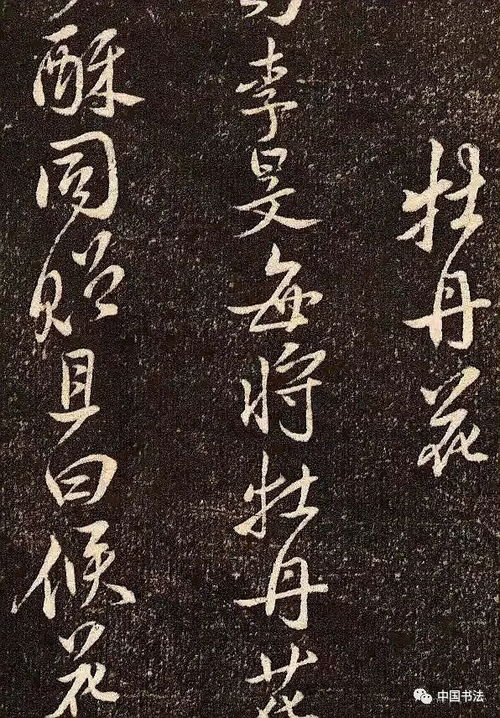 牡丹花
李旻每将牡丹花
酥同貽且曰候花
中国书法